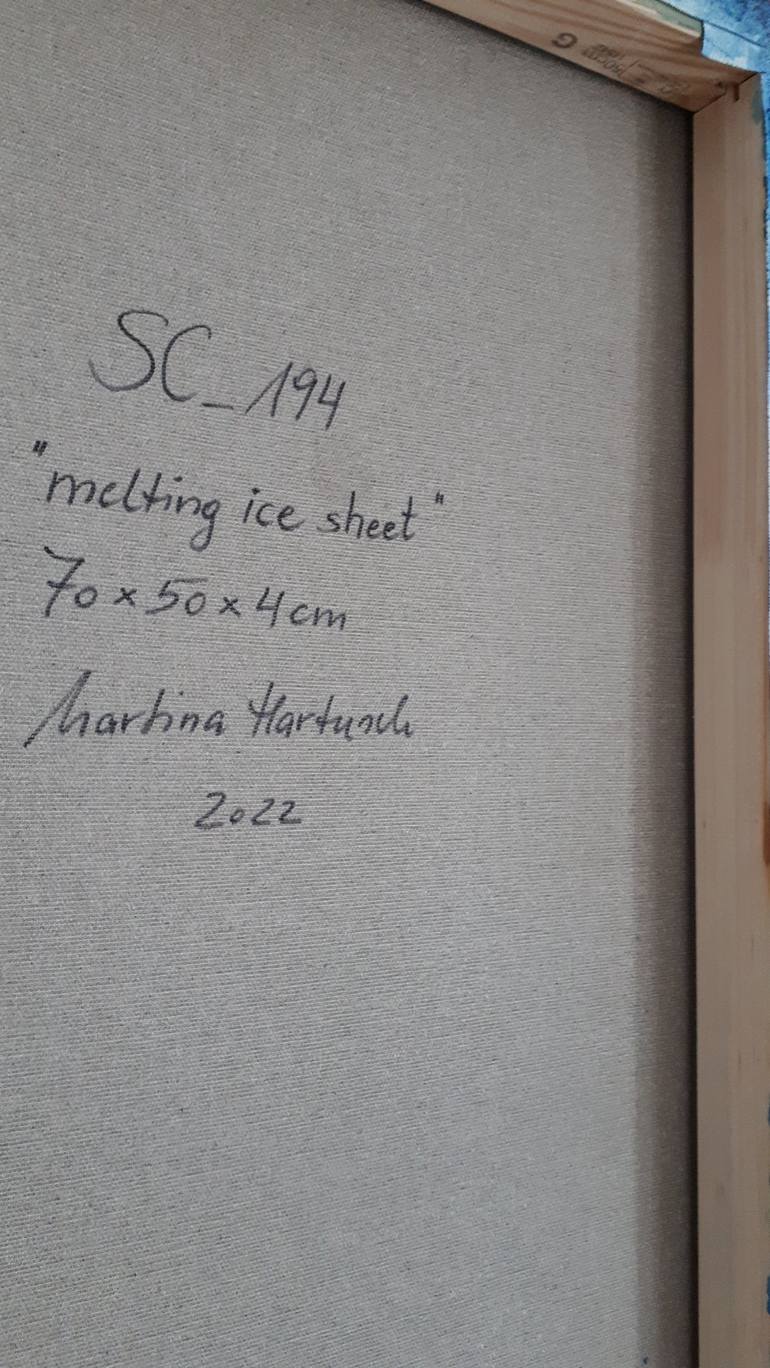 SC_194
"melting ice sheet"
70 x 50 x 4 cm
Martina Hartusch
2022